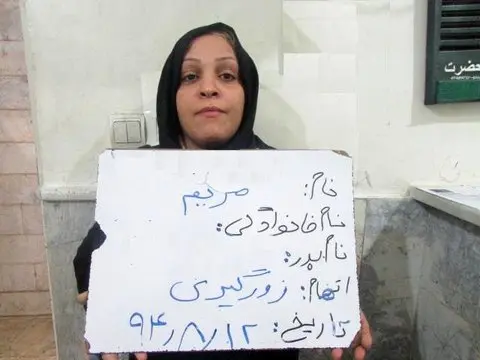 حضرت
نام: مریم
نام خانوادگی:
نام پدر:
اتهام: زورگیری
تاریخ: ۹۴/۸/۱۲